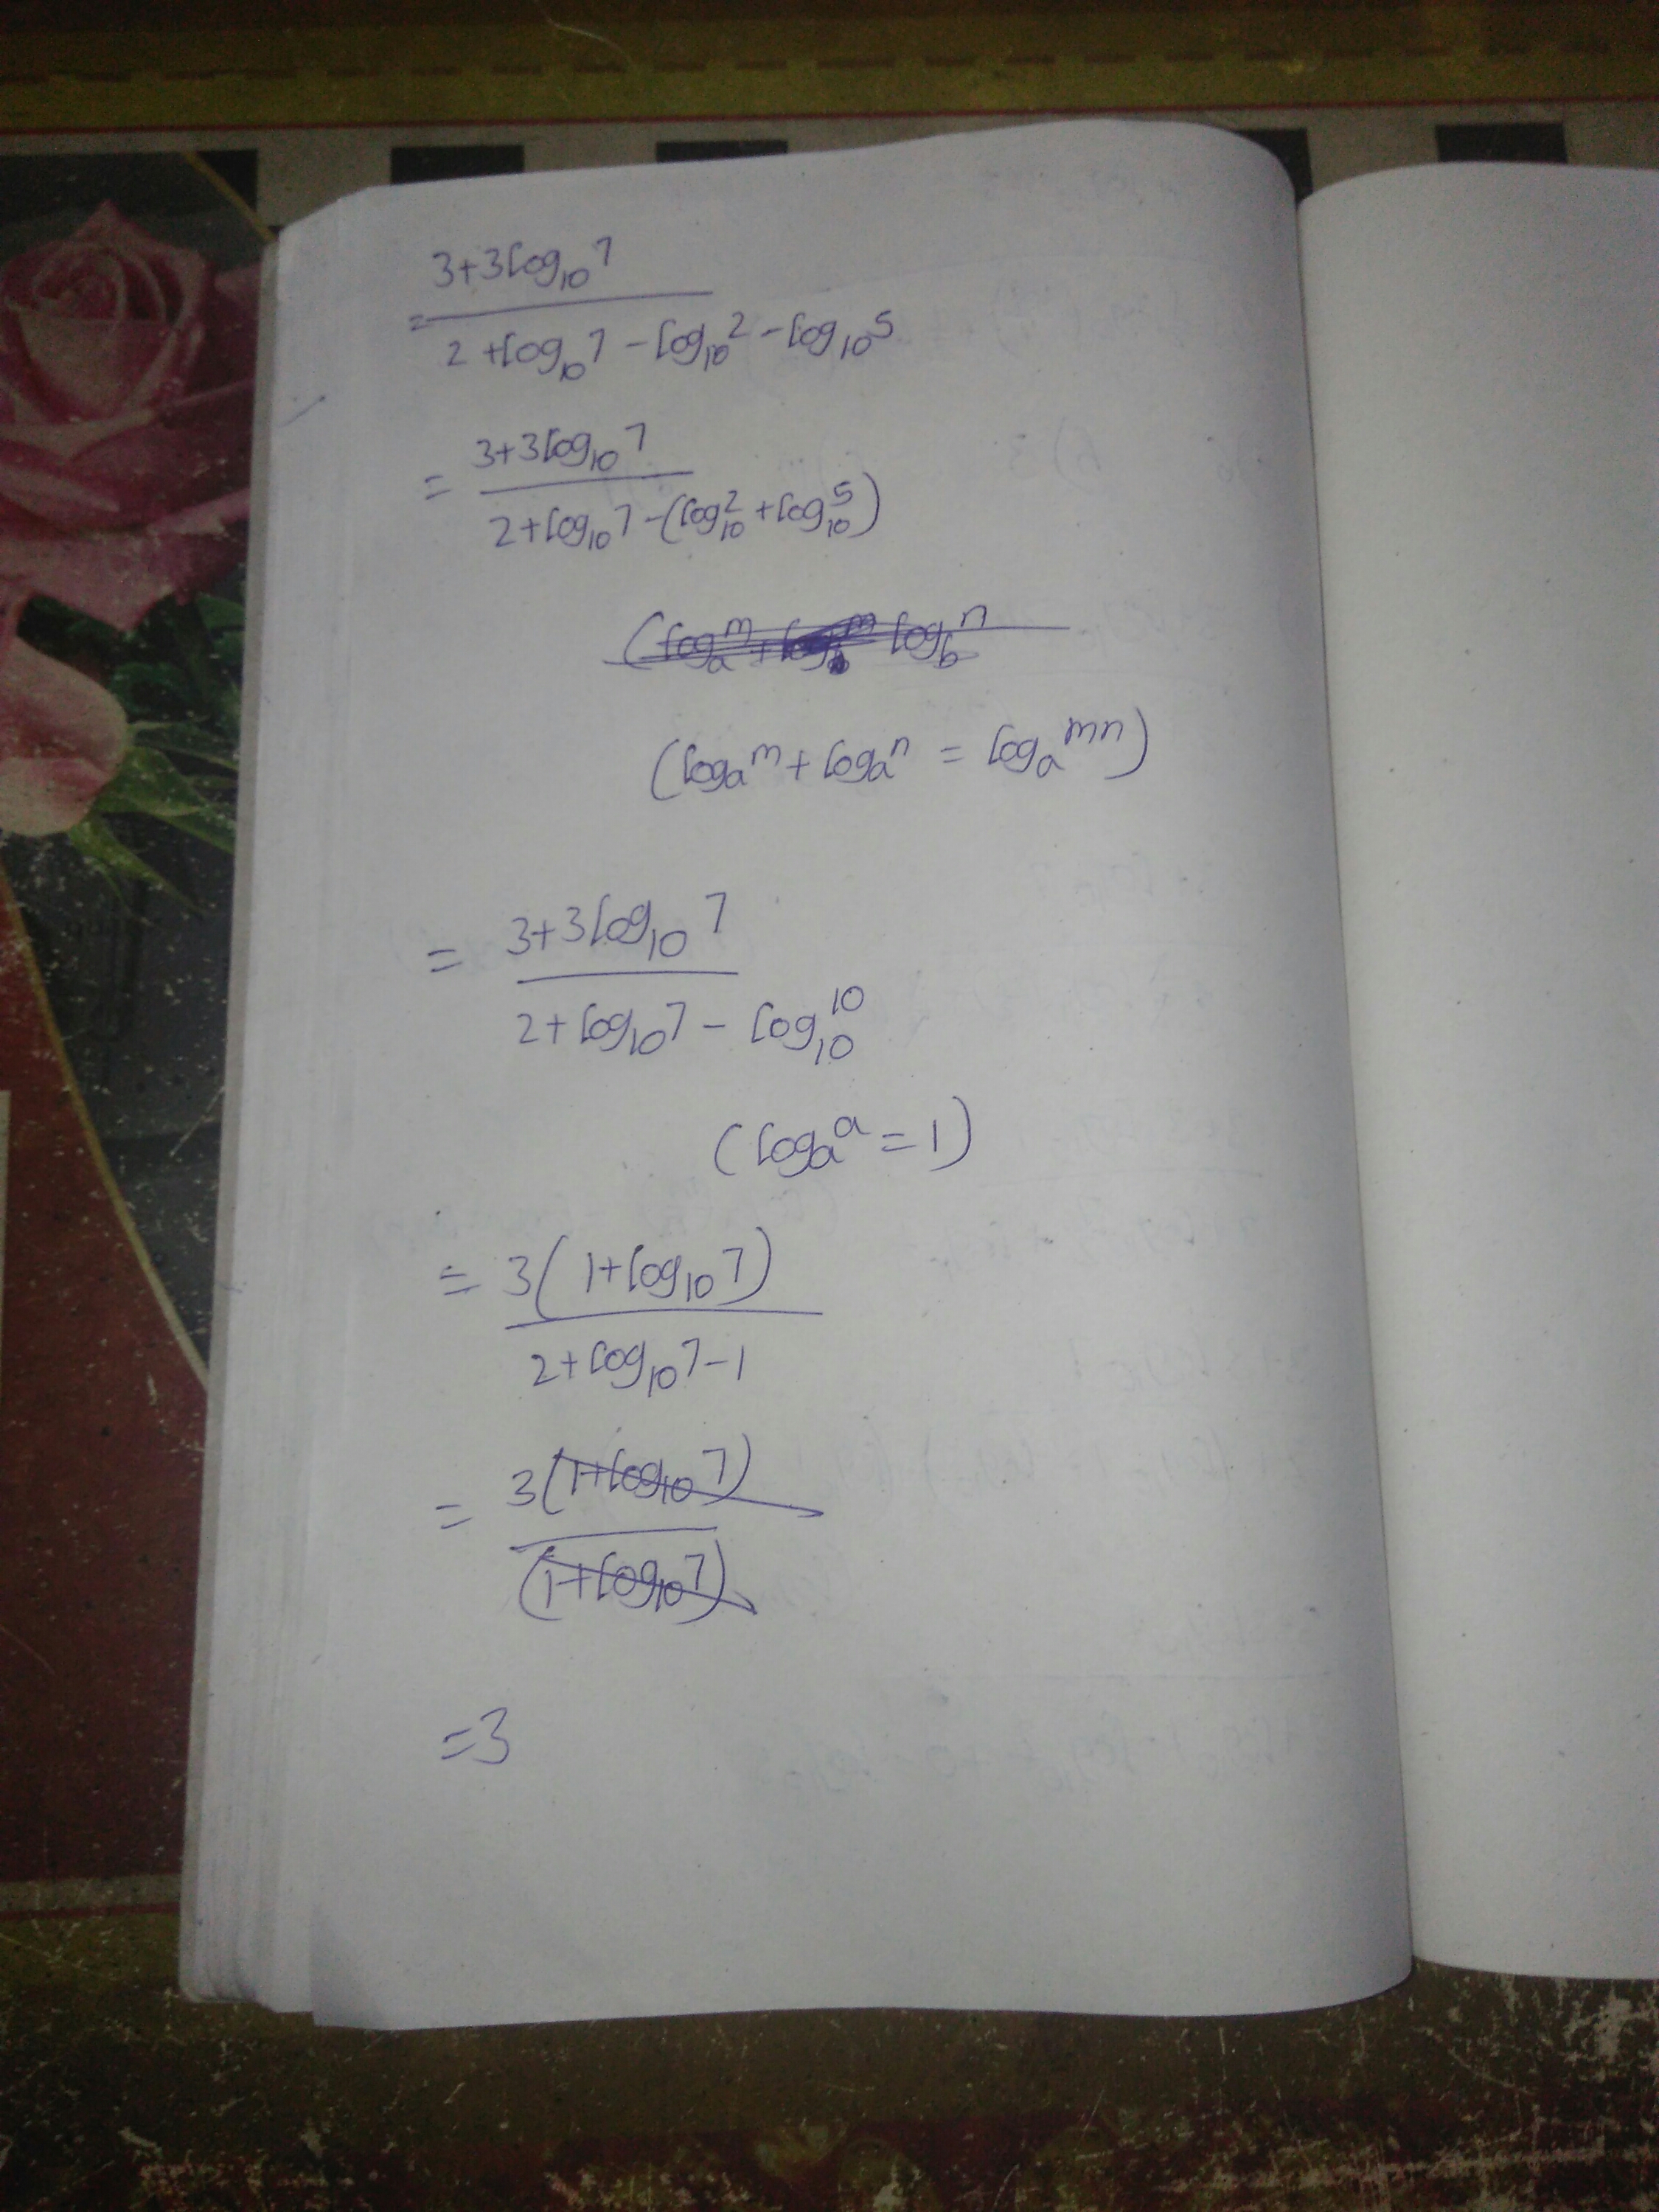 3+3log₁₀7
= 2+log₁₀7-log₁₀2-log₁₀5
= 3+3log₁₀7
2+log₁₀7-(log₁₀2+log₁₀5)
(logₐm+logₐn = logₐmn)
= 3+3log₁₀7
2+log₁₀7-log₁₀10
(logₐa=1)
= 3(1+log₁₀7)
2+log₁₀7-1
= 3(1+log₁₀7)
(1+log₁₀7)
=3